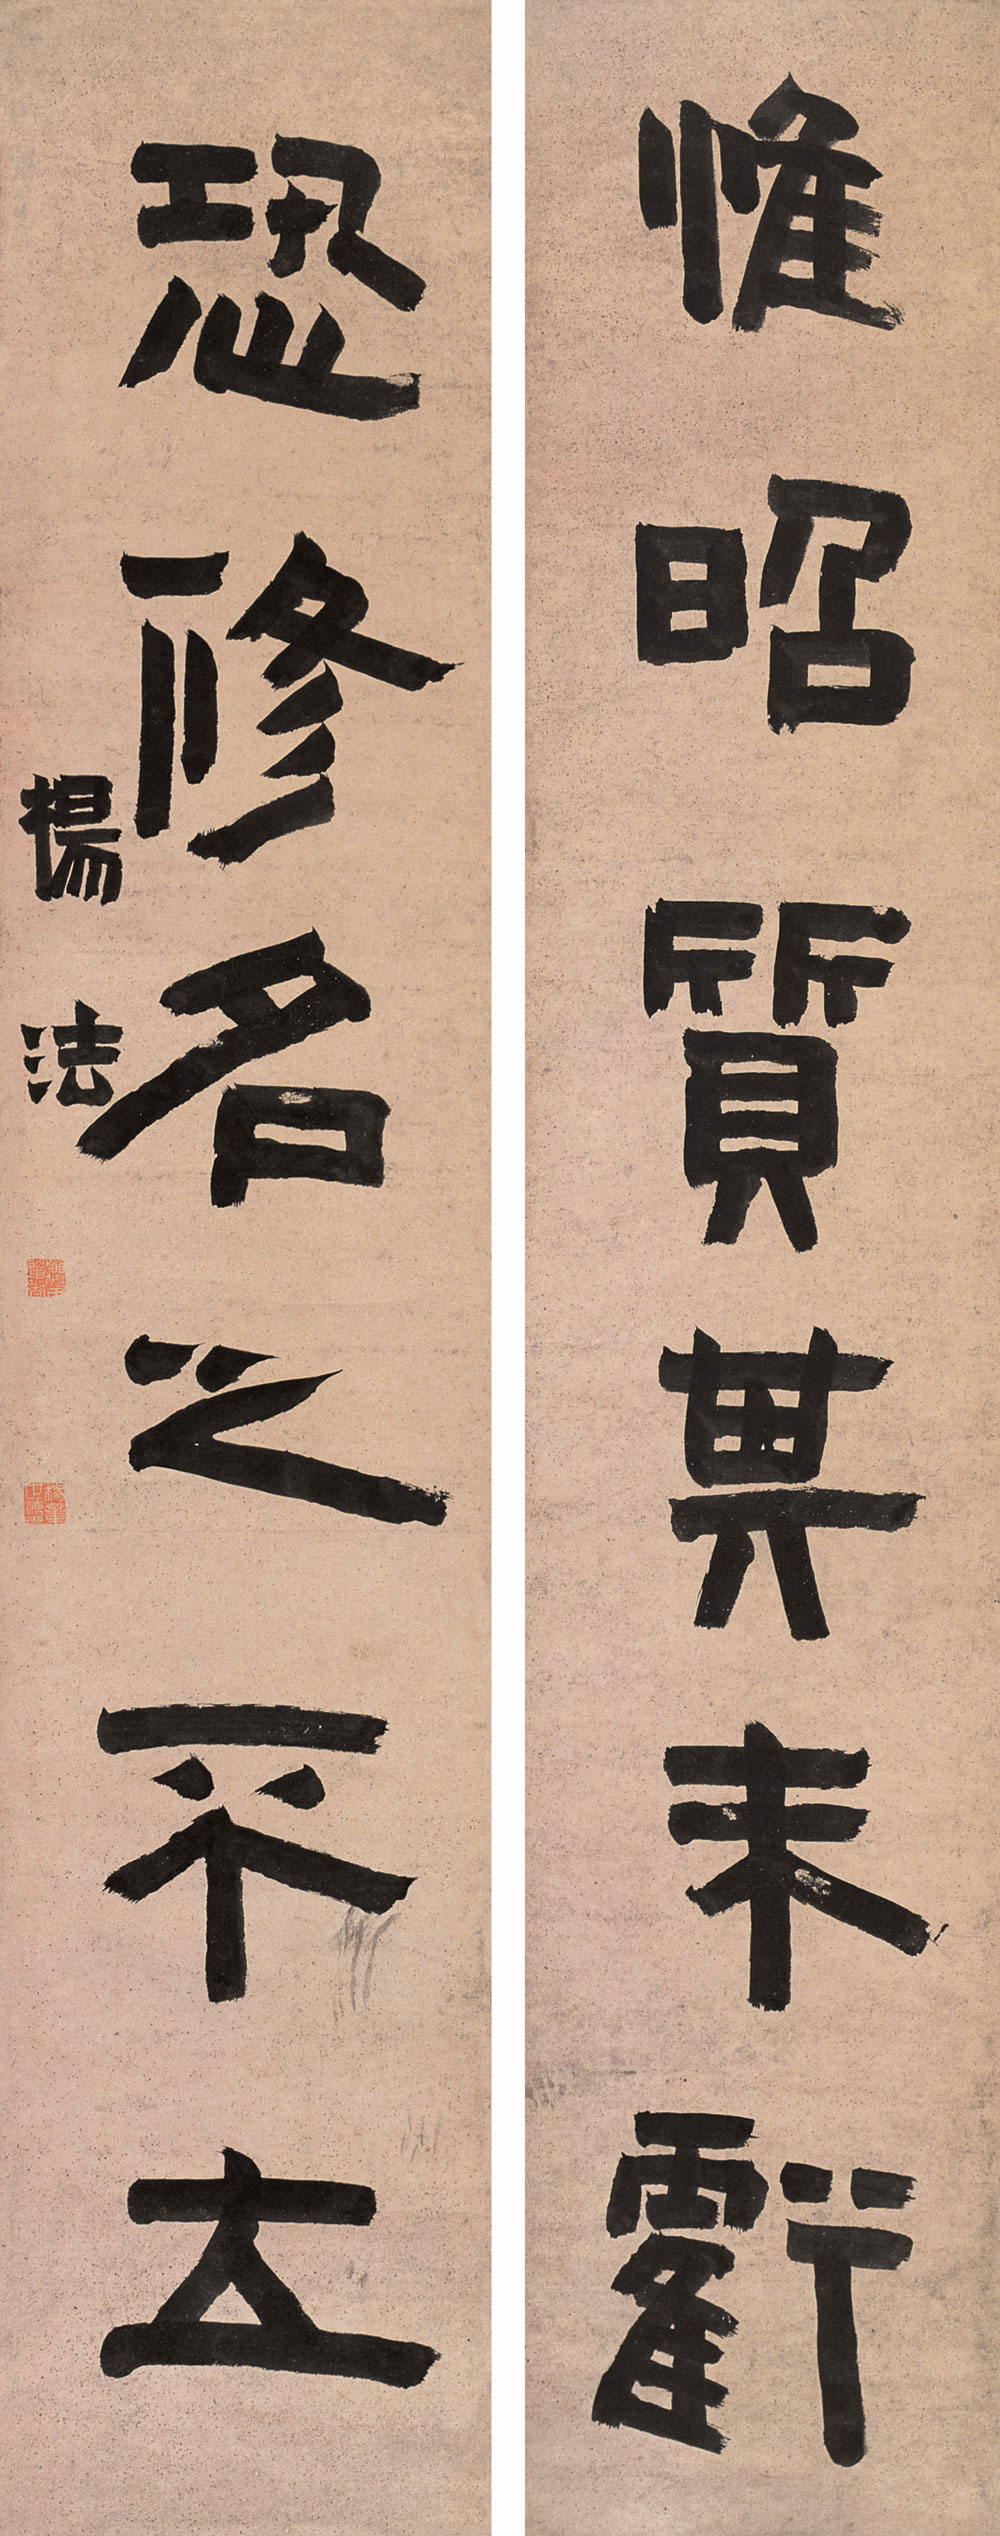 惟昭質其未虧
恐脩名之不立
楊法